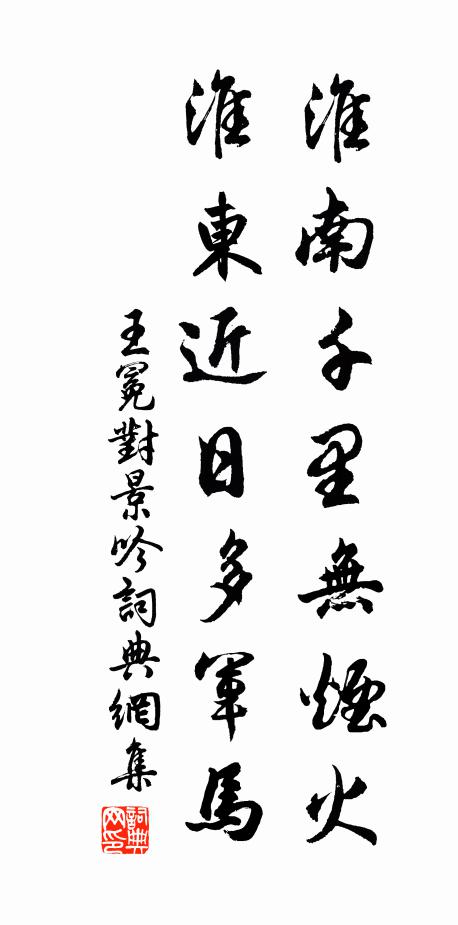 淮南千里無煙火
淮東近日多軍馬
王冕對景吟詞典網集
詞典
网印